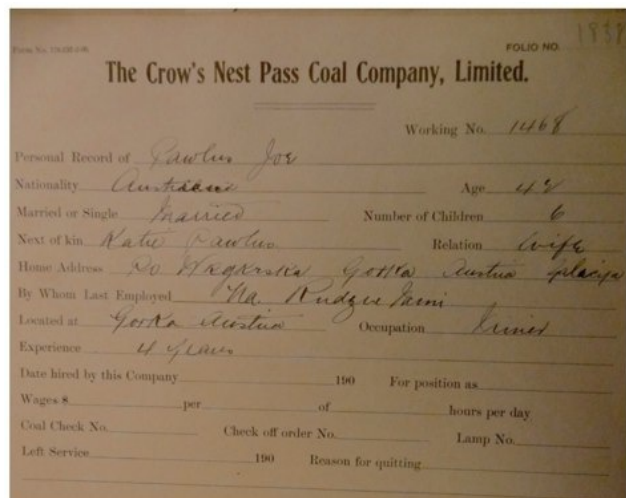 FOLIO NO. 1838
The Crow's Nest Pass Coal Company, Limited.
Working No. 1468
Personal Record of Pawlus Joe
Nationality Austrian
Age 42
Married or Single Married Number of Children 6
Next of kin Katie Pawlus Relation Wife
Home Address Gorka Austria
By Whom Last Employed Na
Located at Gorka Austria Occupation
Experience 4 years
Date hired by this Company 190 For position as
Wages $ per of hours per day
Coal Check No. Check off order No. Lamp No.
Left Service 190 Reason for quitting